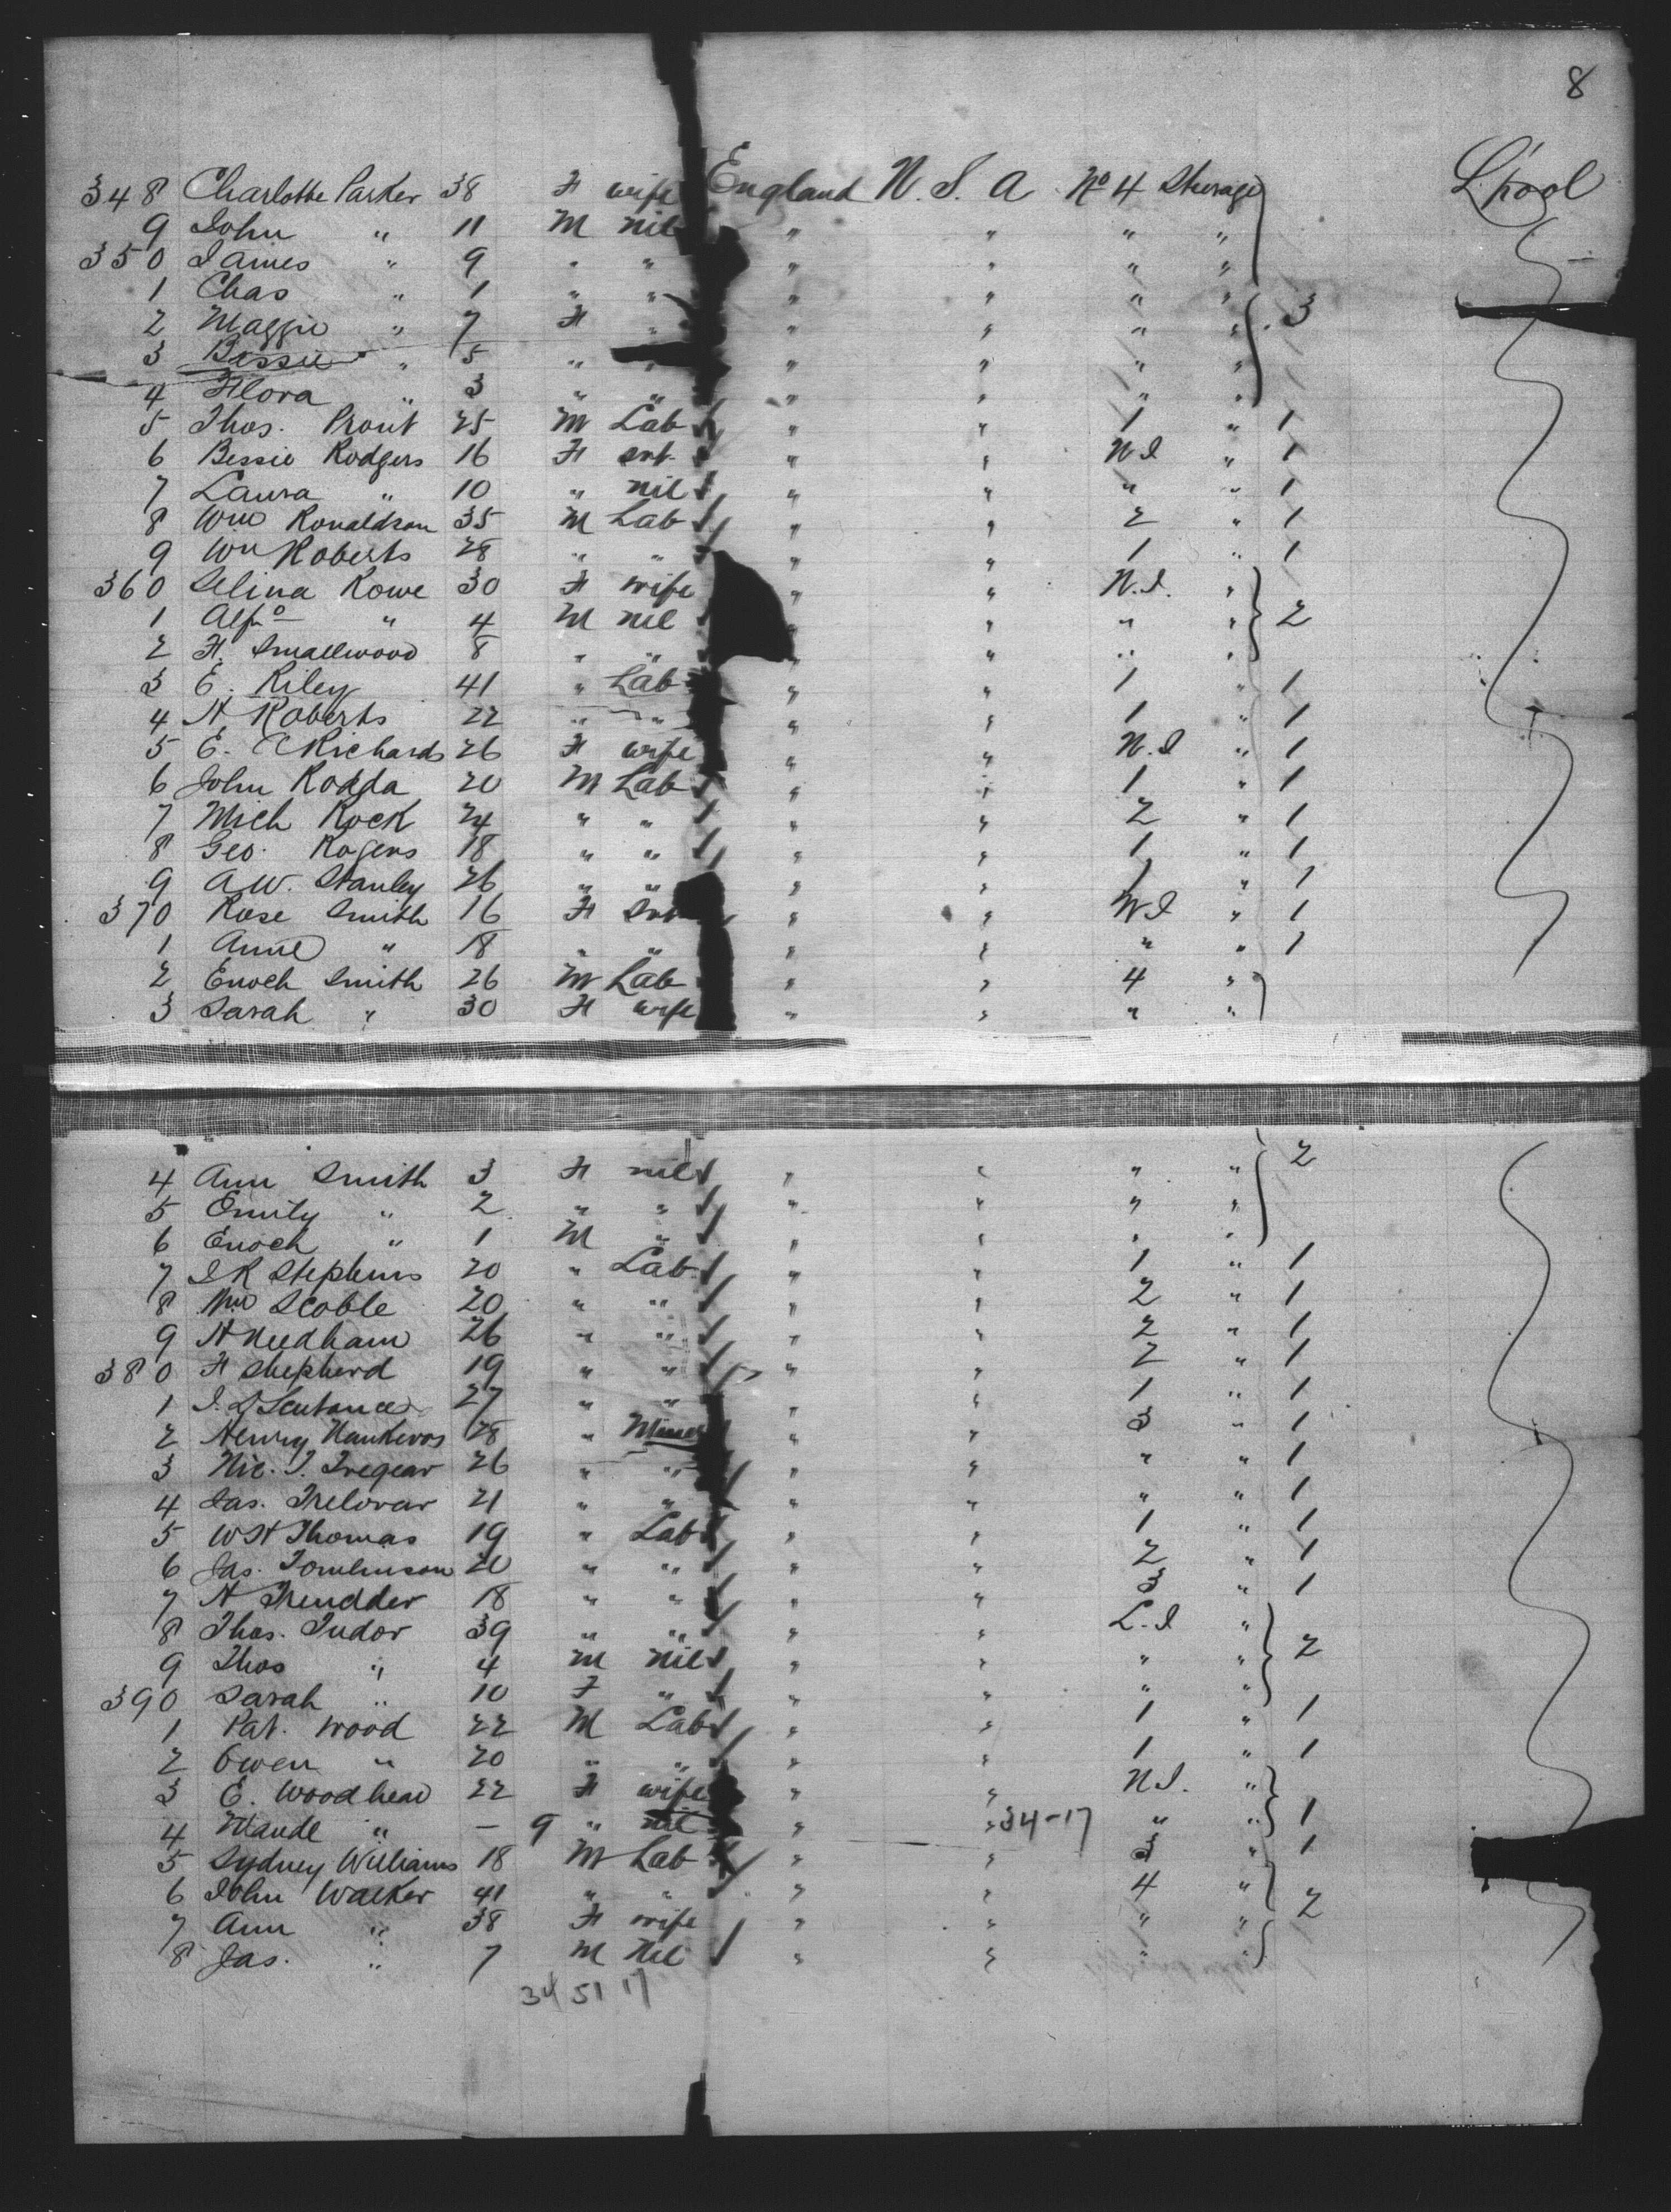 8
348 Charlotte Parker 38 F wife England U. S. A No 4 Steerage L'pool
9 John " 11 M nil " " " "
350 James " 9 " " " " " "
1 Chas " 1 " " " " " "
2 Maggie " 7 F " " " " " 3
3 Bessie " 5 " " " " " "
4 Flora " 3 " " " " " "
5 Thos. Prout 25 M Lab " " 1 " 1
6 Bessie Rodgers 16 F srt " " N.I " 1
7 Laura " 10 " nil " " " " 1
8 Wm Ronaldson 35 M Lab " " 2 " 1
9 Wm Roberts 28 " " " " 1 " 1
360 Selina Rowe 30 F wife " " N.I. "
1 Alfd " 4 M nil " " " " 2
2 F. Smallwood 8 " " " " " "
3 E. Riley 41 " Lab " " 1 " 1
4 H Roberts 22 " " " " 1 " 1
5 E. Richards 26 F wife " " N.I " 1
6 John Rodda 20 M Lab " " 1 " 1
7 Mich Rock 24 " " " " 2 " 1
8 Geo. Rogers 18 " " " " 1 " 1
9 A.W. Stanley 26 " " " " 1 " 1
370 Rose Smith 16 F " " N I " 1
1 Anne " 18 " " " " " " 1
2 Enoch Smith 26 M Lab " " 4 "
3 Sarah " 30 F wife " " " "
4 Ann Smith 3 F nil " " " " 2
5 Emily " 2 " " " " " "
6 Enoch " 1 M " " " " "
7 I R Stephens 20 " Lab " " 1 " 1
8 Wm Scoble 20 " " " " 2 " 1
9 H Needham 26 " " " " 2 " 1
380 F Shepherd 19 " " " " 2 " 1
1 I. Sentance 27 " " " " 1 " 1
2 Henry Nankervos 28 " Miner " " 3 " 1
3 Nic. T. Tregear 26 " " " " " " 1
4 Jas. Trelovar 21 " " " " " " 1
5 W H Thomas 19 " Lab " " 1 " 1
6 Jas. Tomlinson 20 " " " " 2 " 1
7 H Trendder 18 " " " " 3 " 1
8 Thos. Tudor 39 " " " " L.I "
9 Thos " 4 M nil " " " " 2
390 Sarah " 10 F " " " " "
1 Pat. Wood 22 M Lab " " 1 " 1
2 Owen " 20 " " " " 1 " 1
3 E. Woodhead 22 F wife " " N.I. "
4 Maude " - 9 " nil " " 34-17 " " 1
5 Sydney Williams 18 M Lab " " 3 " 1
6 John Walker 41 " " " " 4 "
7 Ann " 38 F wife " " " " 2
8 Jas. " 7 M Nil " " " "
34 51 17